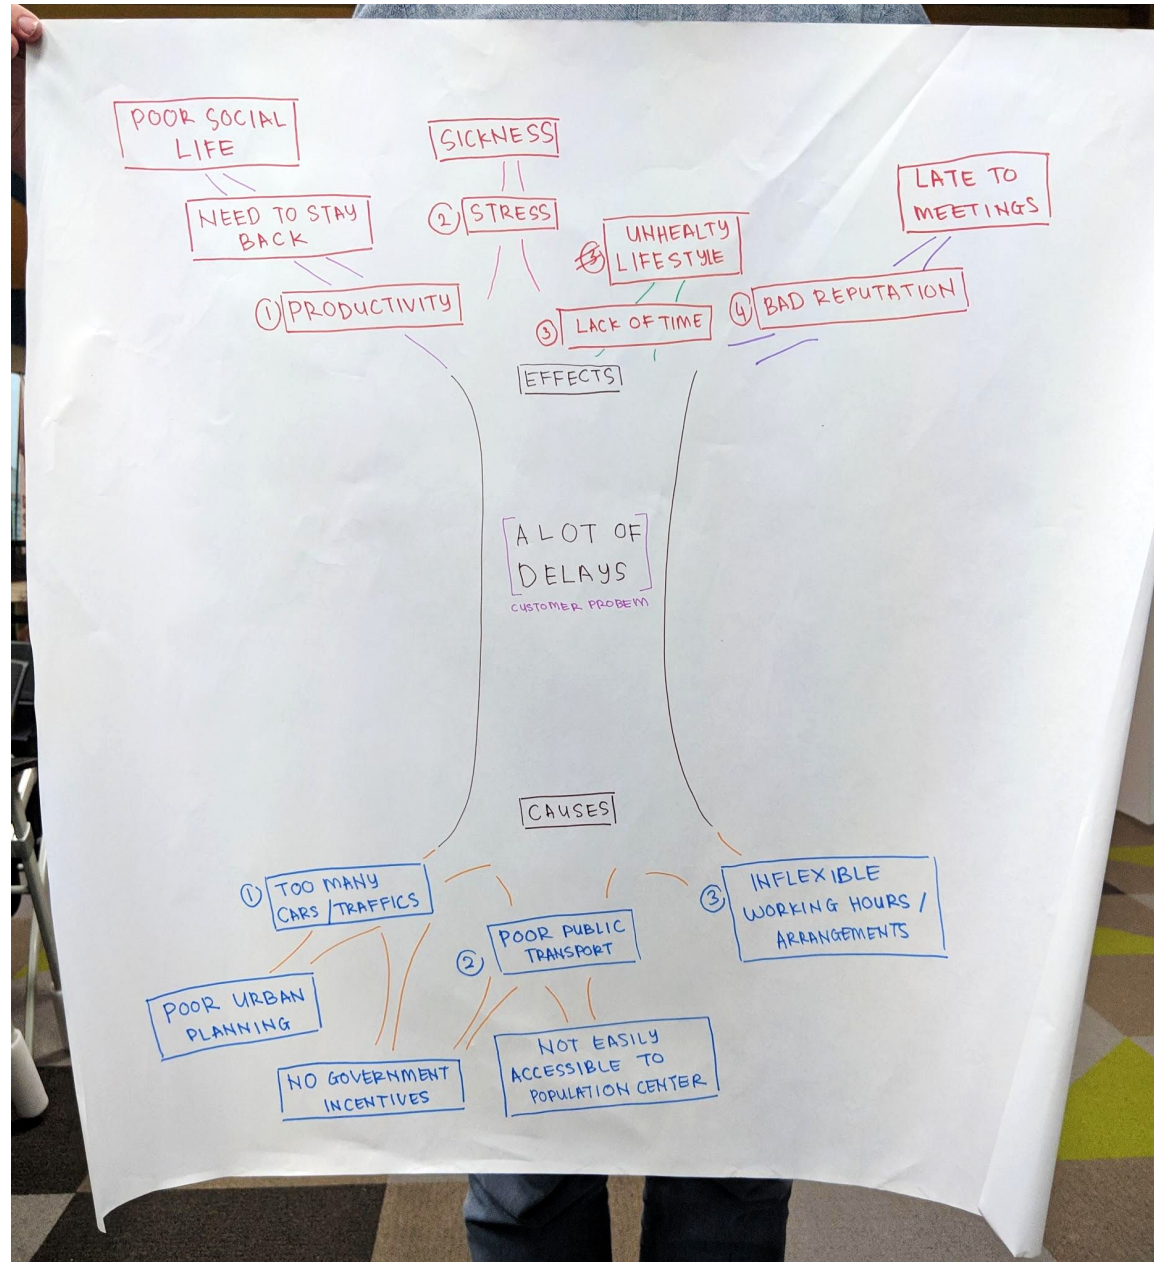 POOR SOCIAL
LIFE
SICKNESS
LATE TO
MEETINGS
NEED TO STAY
BACK
2 STRESS
UNHEALTY
LIFESTYLE
1 PRODUCTIVITY
3 LACK OF TIME
4 BAD REPUTATION
EFFECTS
A LOT OF
DELAYS
CUSTOMER PROBEM
CAUSES
1 TOO MANY
CARS / TRAFFICS
2 POOR PUBLIC
TRANSPORT
3 INFLEXIBLE
WORKING HOURS /
ARRANGEMENTS
POOR URBAN
PLANNING
NO GOVERNMENT
INCENTIVES
NOT EASILY
ACCESSIBLE TO
POPULATION CENTER